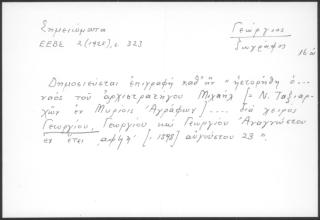 Σημειώματα
Γεώργιος
ΕΕΒΣ 2 (1925), σ. 323
ζωγράφος
Δημοσιεύεται ἐπιγραφή καθ' ἥν "ἱστορήθη ὁ...
ναός τοῦ ἀρχιστρατήγου Μιχαήλ [= Ν. Ταξιαρ-
χῶν ἐν Μυρίσι Ἀγράφων].... διά χειρός
Γεωργίου, Γεωργίου καί Γεωργίου Ἀναγνώστου
ἐν ἔτει αφ [. 1598] αὐγούστου 23"